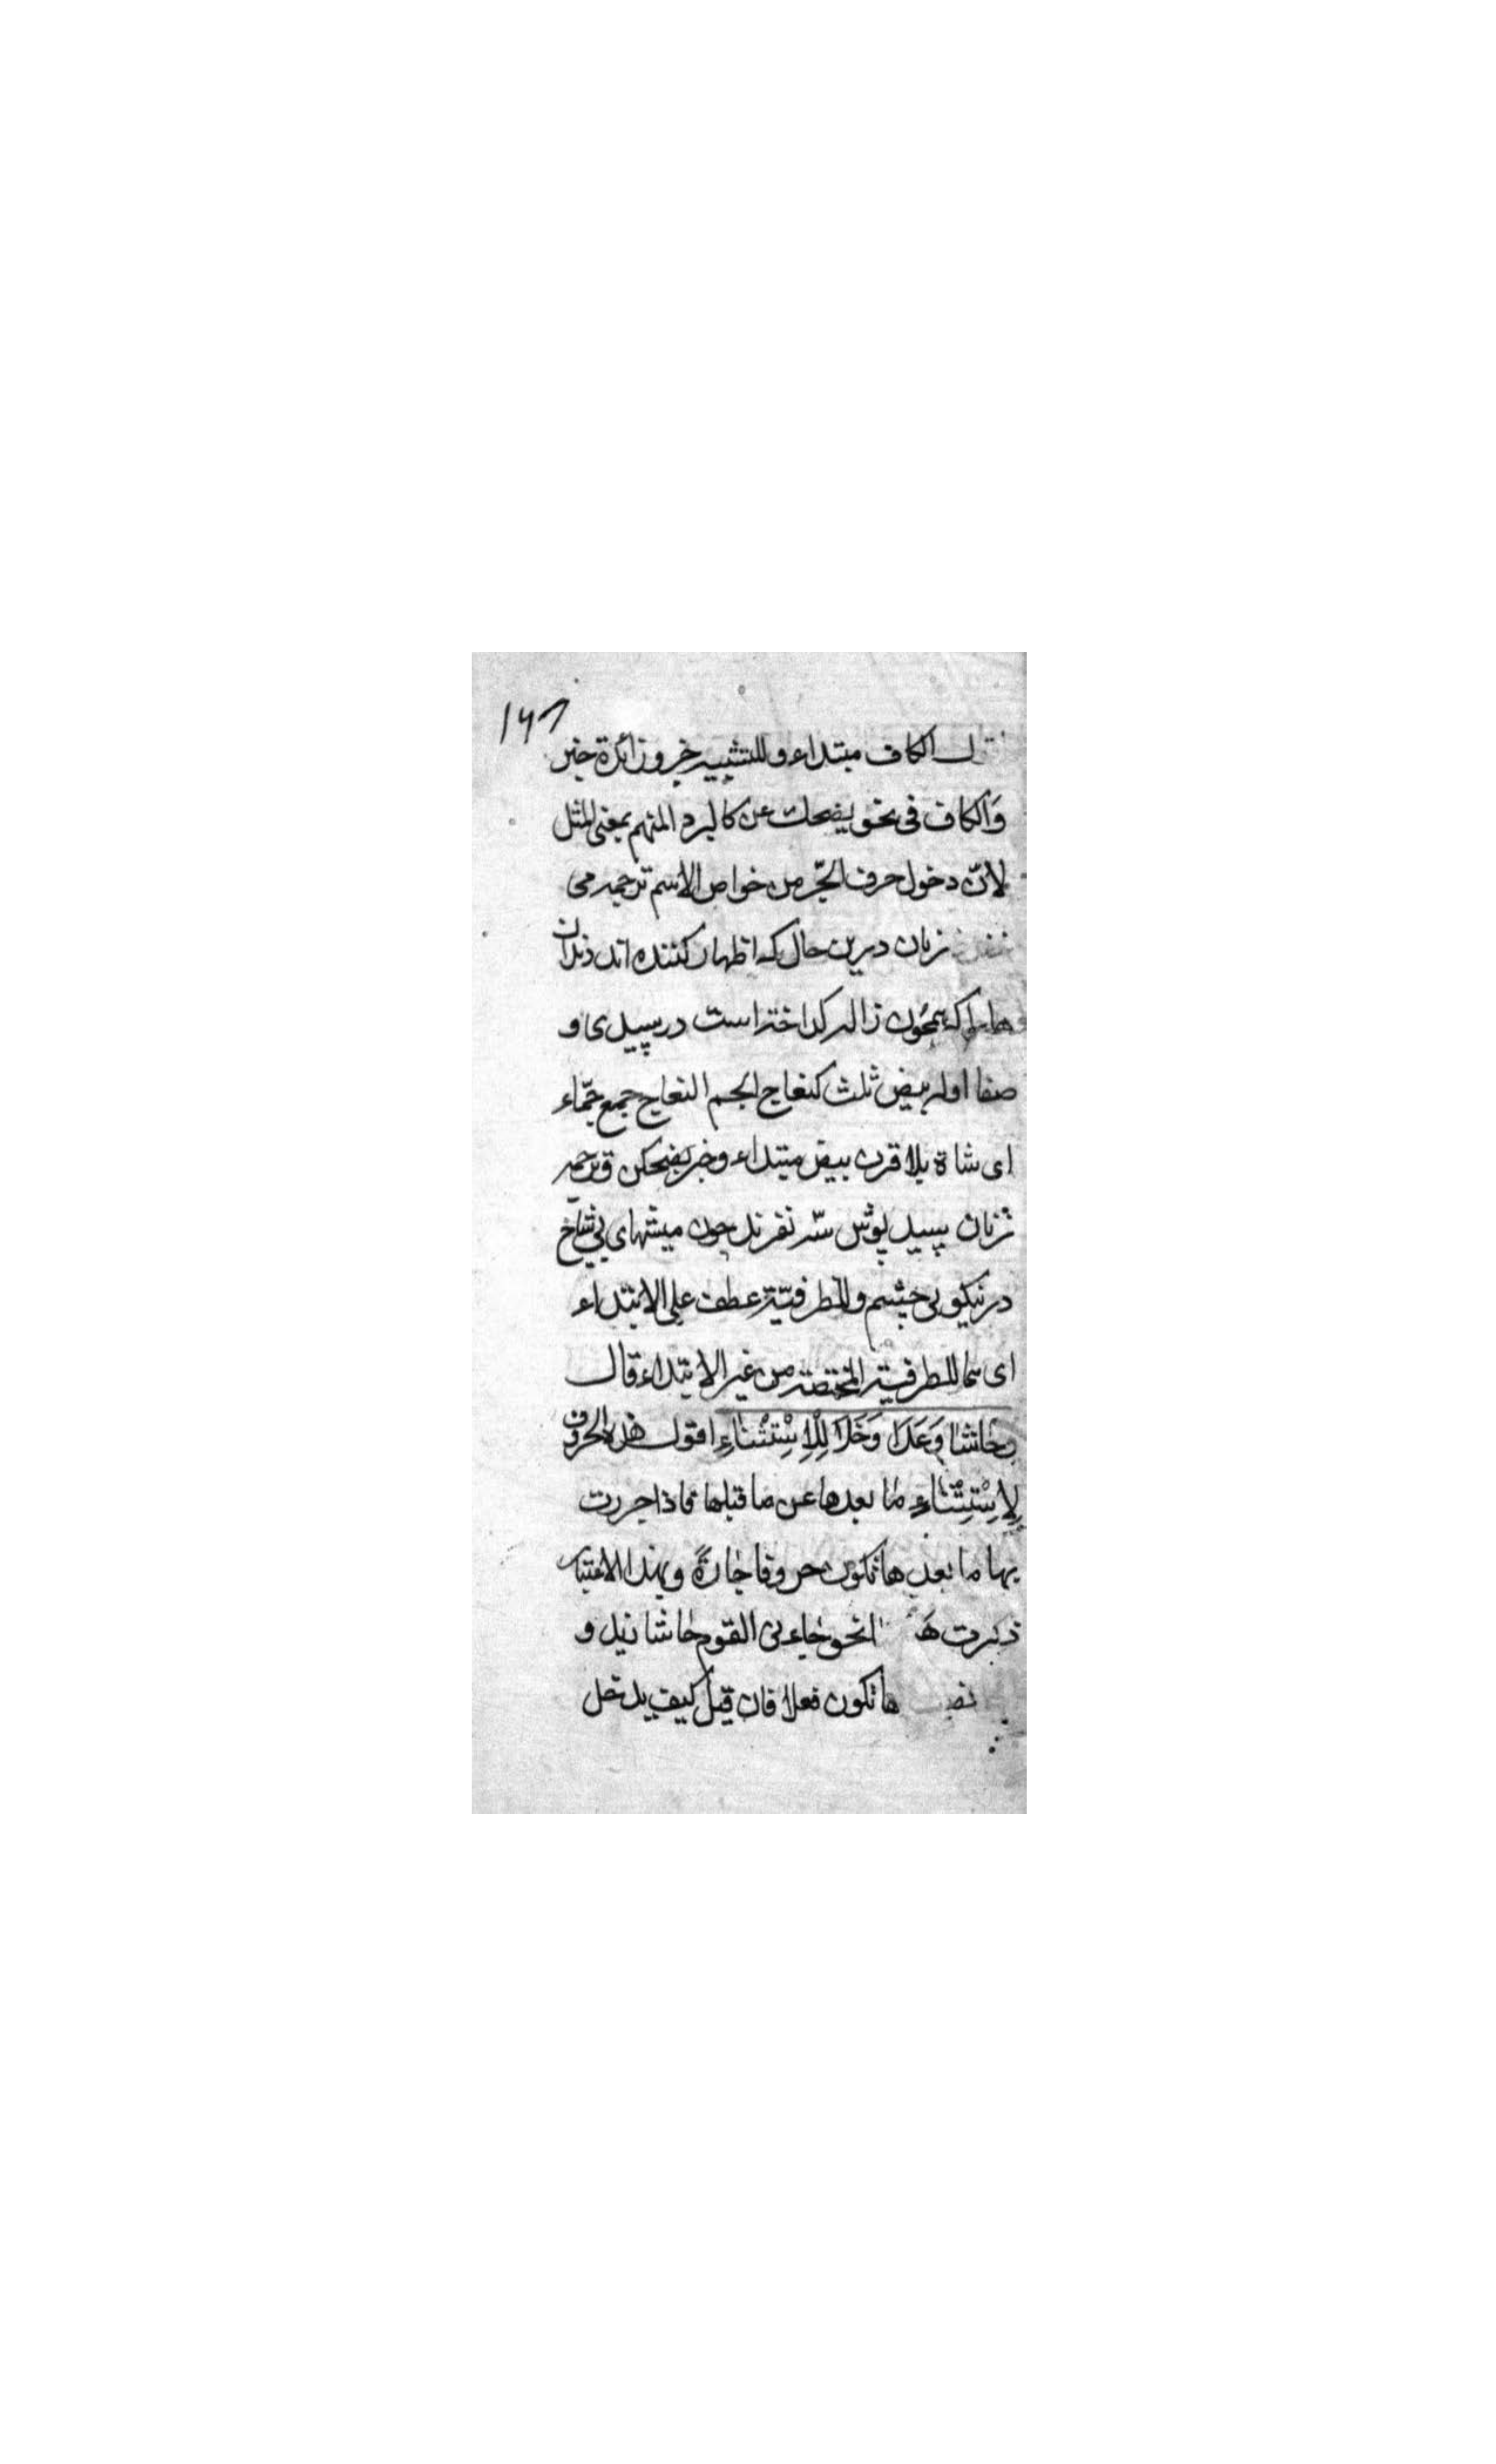 الكاف مبتداء و للتشبيه خبر و زائدة خبر
وَالكاف فى نحو يضحك عن كالبرد المنهم بمعنى المثل
لانّ دخول حرف الجّر من خواص الاسم ترجمه مى
زنان درين حال كه اظهار كننده اند دندان
هارا كه همچون ژاله كداخته است در سپيدى و
صفا اوله بيض ثلث كنعاج الجم النعاج جمع جمّاء
اى شاة بلا قرن بيض مبتداء و خبر يضحكن ترجمه
زنان سپيد پوش سّه نفرند چون ميشهاى بى شاخ
در نيكويى چشم و للظرفيّة عطف على الابتداء
اى هما للظرفية المختصة من غير الابتداء قال
وحَاشَا وَعَدَا وَخَلَا لِلْاِسْتِثْنَاءِ اقول هذه الحروف
لِاِسْتِثْنَاءِ ما بعدها عن ما قبلها فاذا جررت
بها ما بعدها تكون حروفا جارّةً و بهذا الاعتبار
ذكرت نحو جاءنى القوم حاشا زيد و
ها تكون فعلا فان قيل كيف يدخل